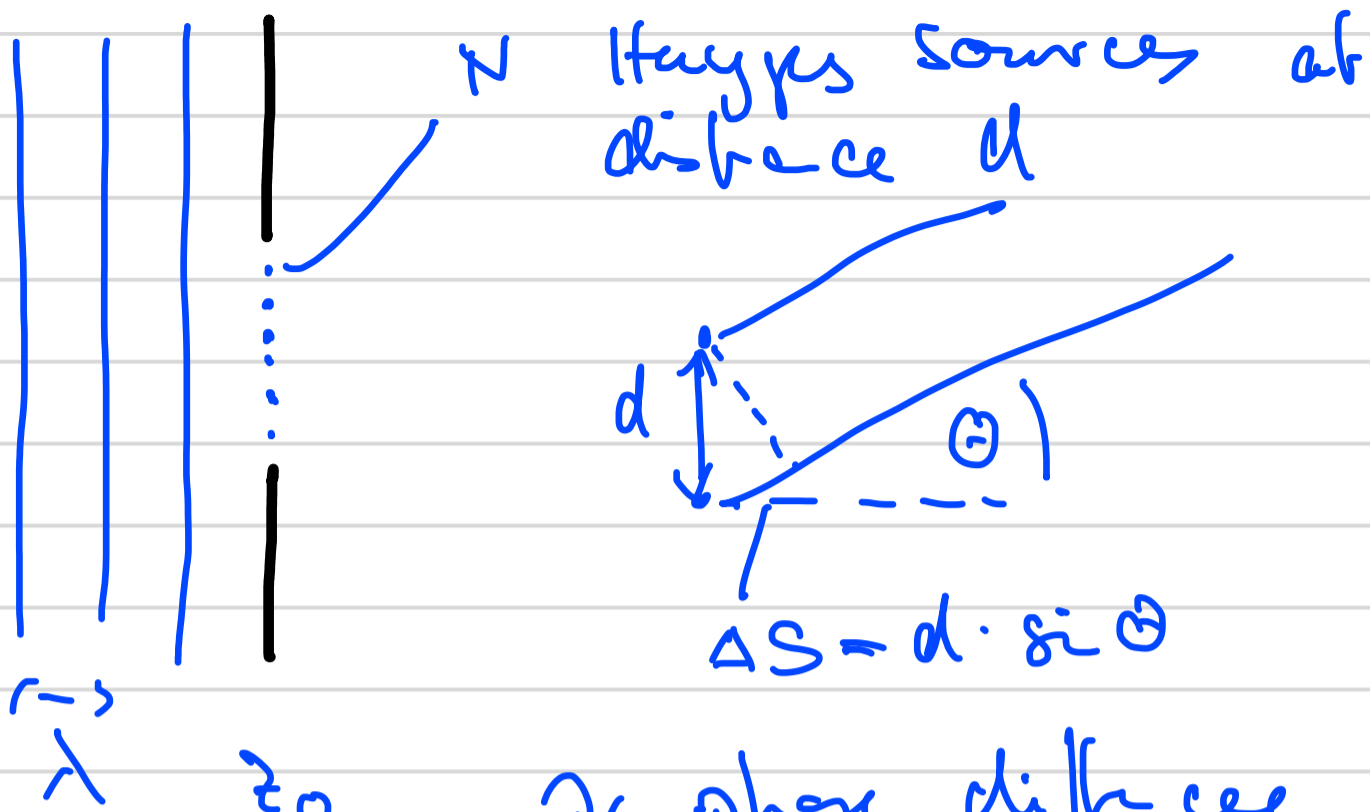 N Huygens sources at
distance d
d
Θ
ΔS = d · sin Θ
λ
phase difference